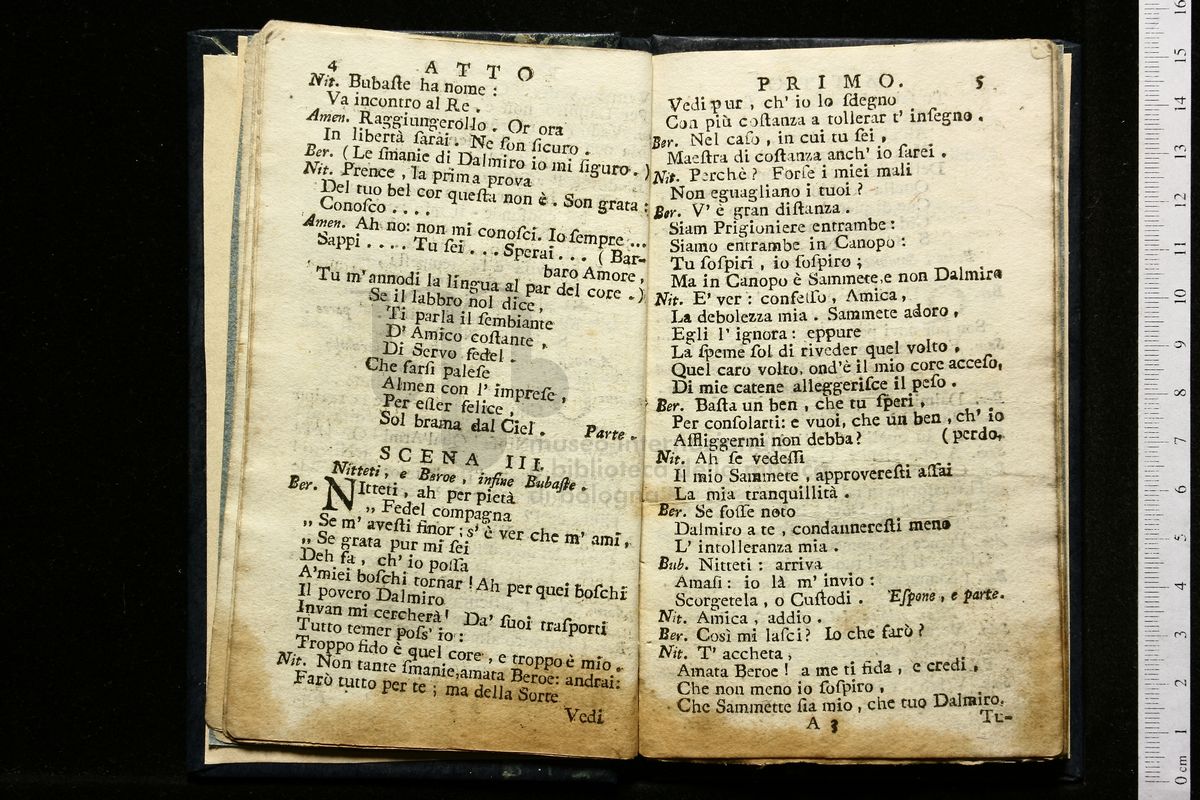 4 ATTO
Nit. Bubaſte ha nome :
Va incontro al Re .
Amen. Raggiungerollo . Or ora
In libertà ſarai . Ne ſon ſicuro .
Ber. ( Le ſmanie di Dalmiro io mi figuro . )
Nit. Prence , la prima prova
Del tuo bel cor queſta non è . Son grata :
Conoſco . . . .
Amen. Ah no: non mi conoſci. Io ſempre ...
Sappi . . . . Tu ſei . . . Sperai . . . ( Bar-
baro Amore ,
Tu m' annodi la lingua al par del core . )
Se il labbro nol dice ,
Ti parla il ſembiante
D' Amico coſtante ,
Di Servo fedel .
Che farſi paleſe
Almen con l' impreſe ,
Per eſſer felice ,
Sol brama dal Ciel . Parte .
SCENA III.
Nitteti, e Beroe , infine Bubaſte .
Ber. NItteti , ah per pietà
„ Fedel compagna
„ Se m' aveſti finor ; s' è ver che m' ami ,
„ Se grata pur mi ſei
Deh fa , ch' io poſſa
A' miei boſchi tornar ! Ah per quei boſchi
Il povero Dalmiro
Invan mi cercherà ! Da' ſuoi traſporti
Tutto temer poſs' io :
Troppo fido è quel core , e troppo è mio .
Nit. Non tante ſmanie,amata Beroe: andrai:
Farò tutto per te ; ma della Sorte
Vedi
PRIMO. 5
Vedi pur , ch' io lo ſdegno
Con più coſtanza a tollerar t' inſegno .
Ber. Nel caſo , in cui tu ſei ,
Maeſtra di coſtanza anch' io ſarei .
Nit. Perchè ? Forſe i miei mali
Non eguagliano i tuoi ?
Ber. V' è gran diſtanza .
Siam Prigioniere entrambe :
Siamo entrambe in Canopo :
Tu ſoſpiri , io ſoſpiro ;
Ma in Canopo è Sammete,e non Dalmiro
Nit. E' ver : confeſſo , Amica ,
La debolezza mia . Sammete adoro ,
Egli l' ignora : eppure
La ſpeme ſol di riveder quel volto ,
Quel caro volto, ond'è il mio core acceſo,
Di mie catene alleggeriſce il peſo .
Ber. Baſta un ben , che tu ſperi ,
Per conſolarti: e vuoi, che un ben , ch' io
Affliggermi non debba ? ( perdo,
Nit. Ah ſe vedeſſi
Il mio Sammete , approvereſti aſſai
La mia tranquillità .
Ber. Se foſſe noto
Dalmiro a te , condannereſti meno
L' intolleranza mia .
Bub. Nitteti : arriva
Amaſi : io là m' invio :
Scorgetela , o Cuſtodi . Eſpone , e parte.
Nit. Amica , addio .
Ber. Così mi laſci? Io che farò ?
Nit. T' accheta ,
Amata Beroe ! a me ti fida , e credi ,
Che non meno io ſoſpiro ,
Che Sammette ſia mio , che tuo Dalmiro.
A 3 Tu-
museo internazionale
e biblioteca della musica
di bologna
0 cm 1 2 3 4 5 6 7 8 9 10 11 12 13 14 15 16